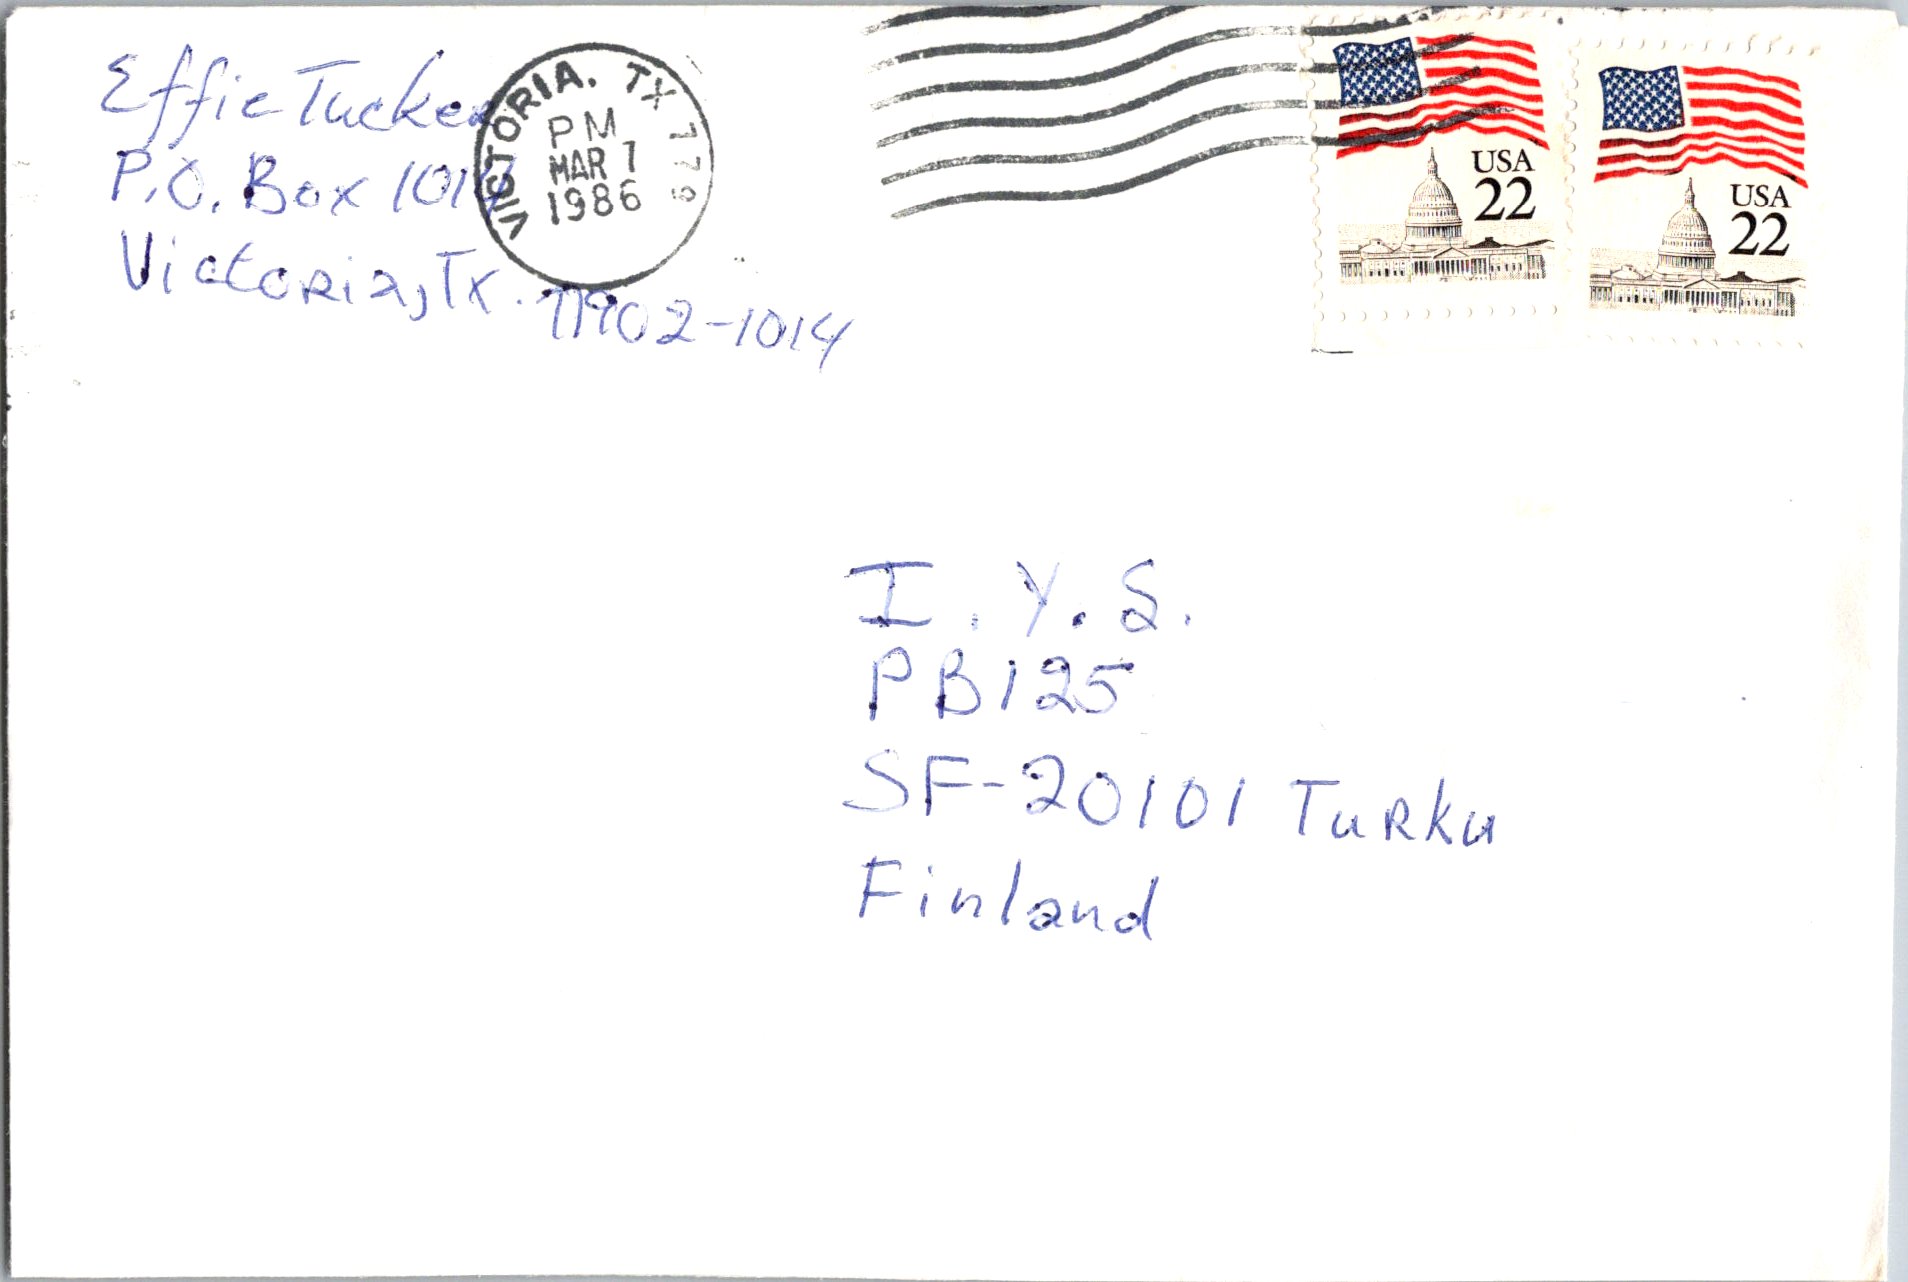 Effie Tucker
P.O. Box 1014
Victoria, Tx. 77902-1014
VICTORIA, TX 779
PM
MAR 7
1986
USA
22
USA
22
I.Y.S.
PB 125
SF-20101 Turku
Finland